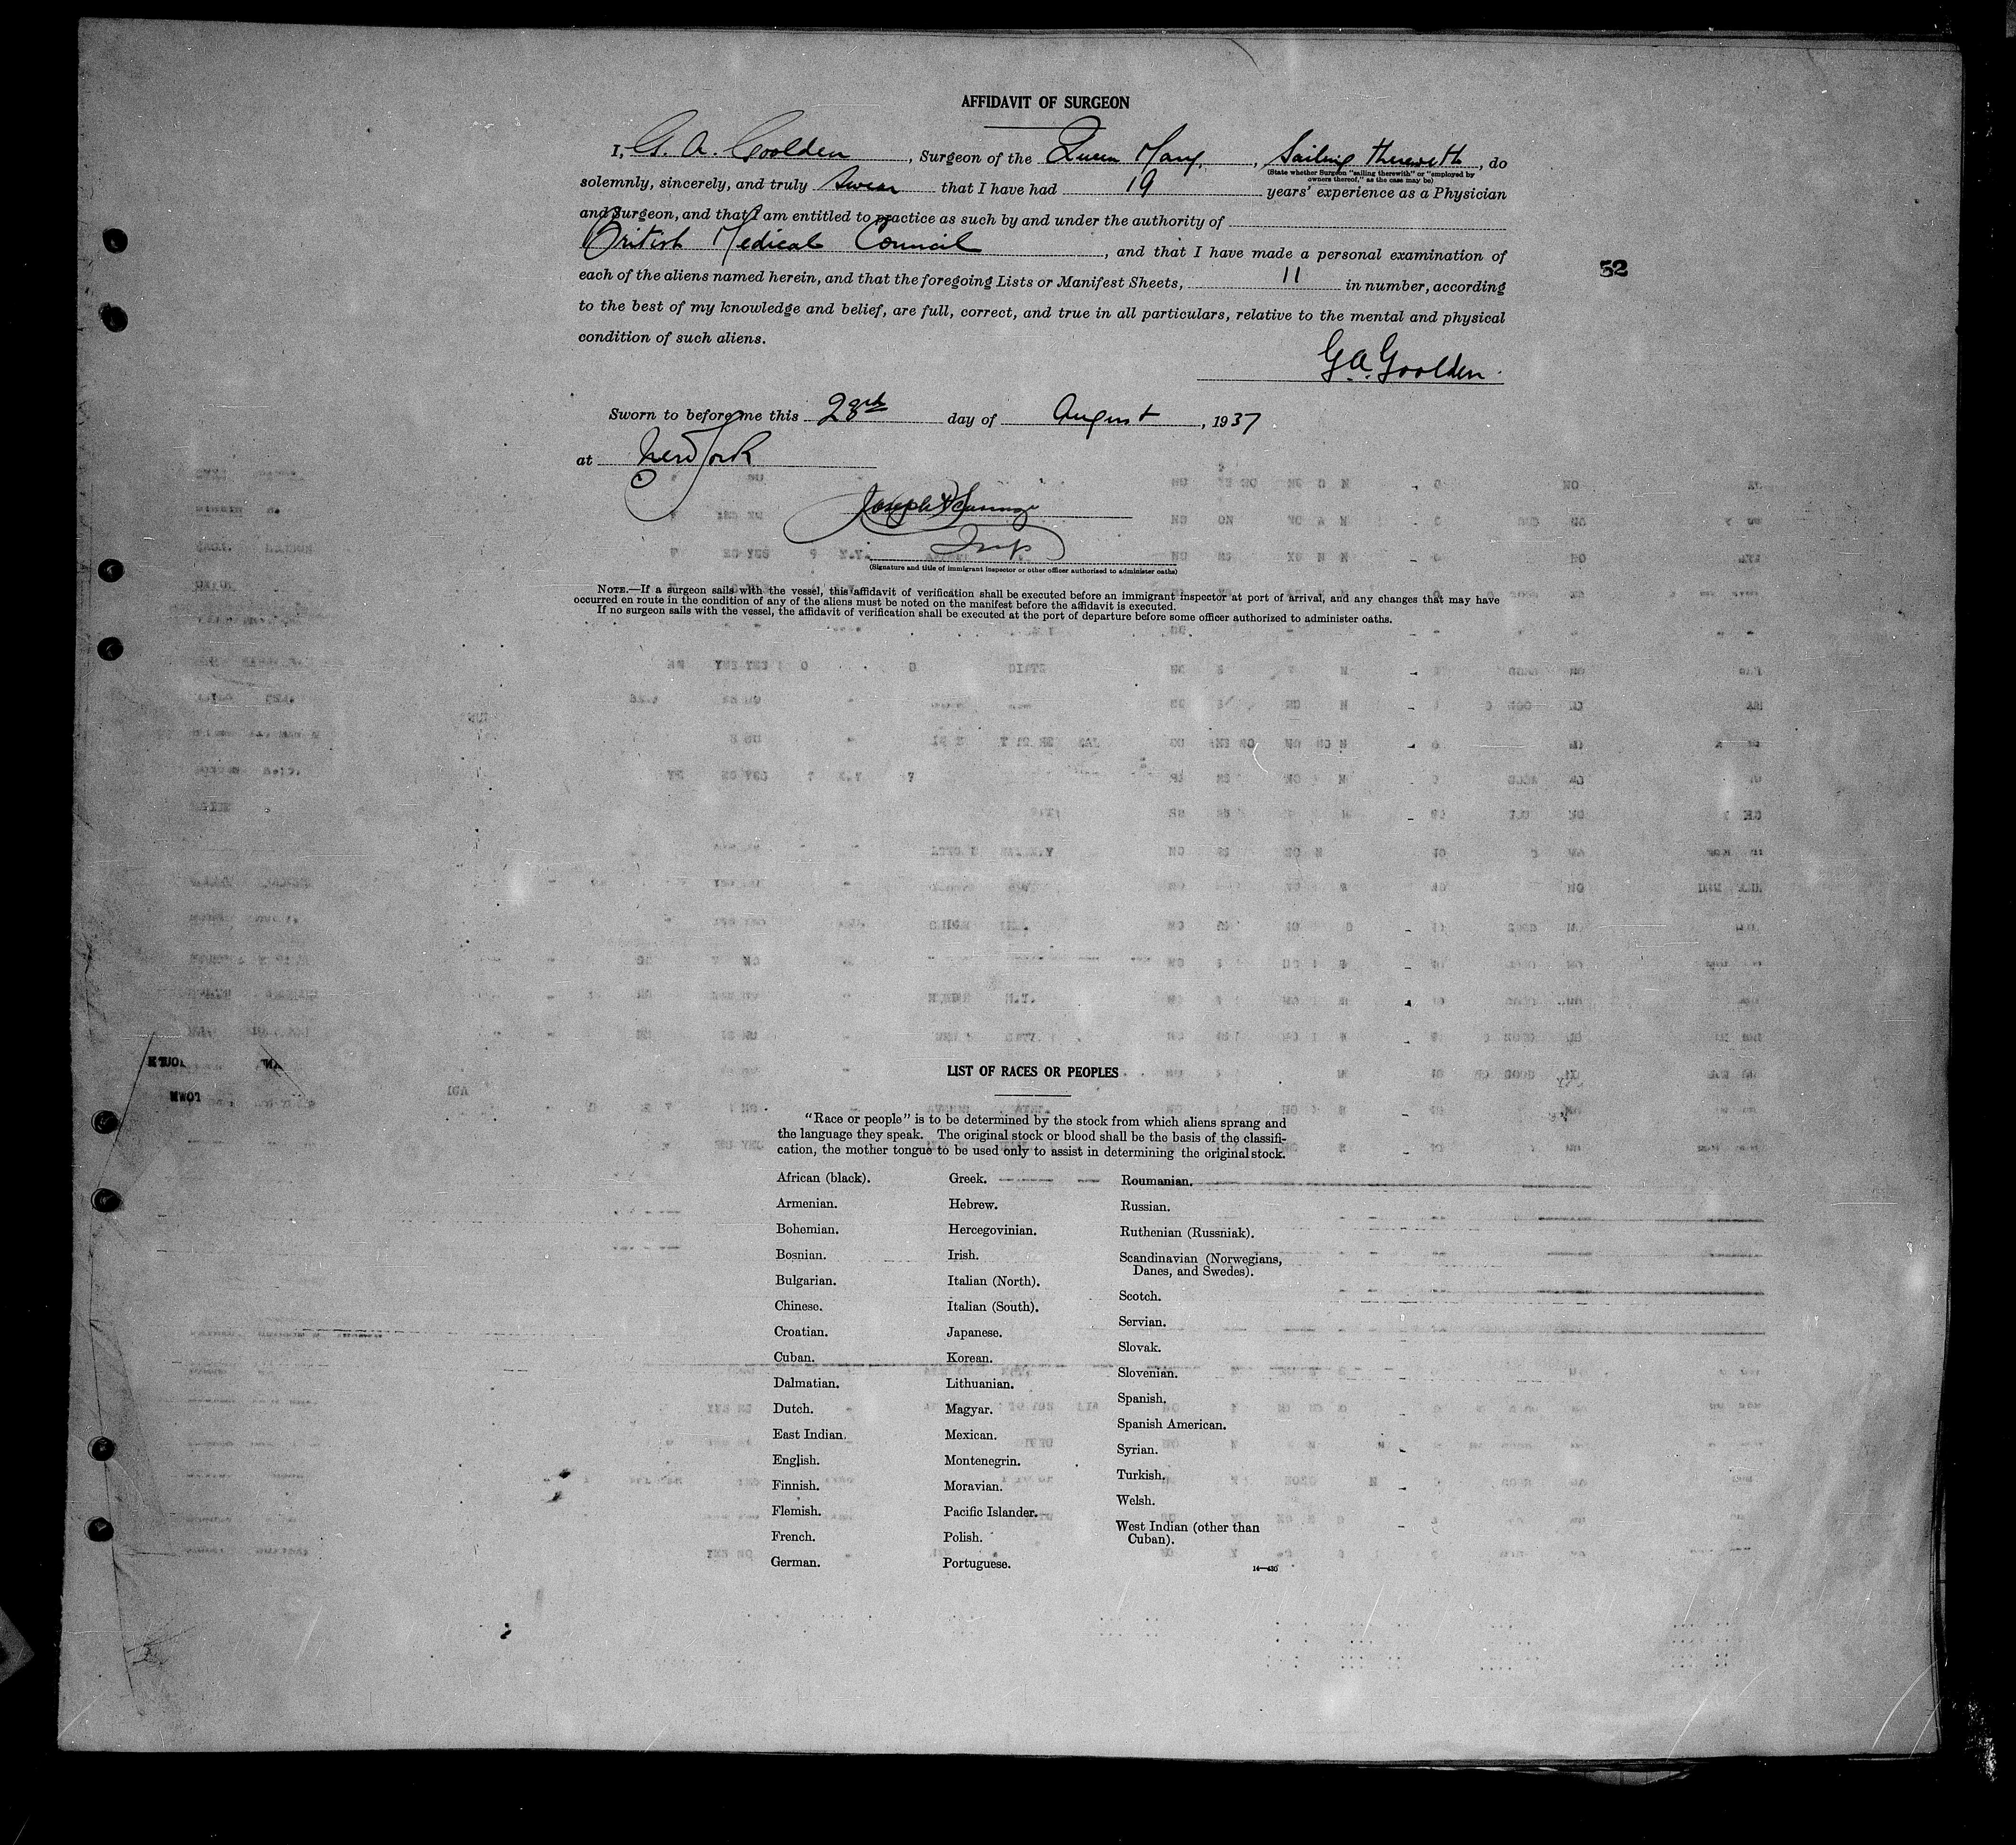 AFFIDAVIT OF SURGEON
I, G. A. Goolden, Surgeon of the Queen Mary, Sailing therewith, do
(State whether Surgeon "sailing therewith" or "employed by
owners thereof," as the case may be)
solemnly, sincerely, and truly swear that I have had 19 years' experience as a Physician
and Surgeon, and that I am entitled to practice as such by and under the authority of
British Medical Council, and that I have made a personal examination of
52
each of the aliens named herein, and that the foregoing Lists or Manifest Sheets, 11 in number, according
to the best of my knowledge and belief, are full, correct, and true in all particulars, relative to the mental and physical
condition of such aliens.
G.A. Goolden.
Sworn to before me this 23rd day of August, 1937
at New York
Joseph
Insp
(Signature and title of immigrant inspector or other officer authorized to administer oaths)
NOTE.—If a surgeon sails with the vessel, this affidavit of verification shall be executed before an immigrant inspector at port of arrival, and any changes that may have
occurred en route in the condition of any of the aliens must be noted on the manifest before the affidavit is executed.
If no surgeon sails with the vessel, the affidavit of verification shall be executed at the port of departure before some officer authorized to administer oaths.
LIST OF RACES OR PEOPLES
"Race or people" is to be determined by the stock from which aliens sprang and
the language they speak. The original stock or blood shall be the basis of the classifi-
cation, the mother tongue to be used only to assist in determining the original stock.
African (black).
Armenian.
Bohemian.
Bosnian.
Bulgarian.
Chinese.
Croatian.
Cuban.
Dalmatian.
Dutch.
East Indian.
English.
Finnish.
Flemish.
French.
German.
Greek.
Hebrew.
Hercegovinian.
Irish.
Italian (North).
Italian (South).
Japanese.
Korean.
Lithuanian.
Magyar.
Mexican.
Montenegrin.
Moravian.
Pacific Islander.
Polish.
Portuguese.
Roumanian.
Russian.
Ruthenian (Russniak).
Scandinavian (Norwegians,
Danes, and Swedes).
Scotch.
Servian.
Slovak.
Slovenian.
Spanish.
Spanish American.
Syrian.
Turkish.
Welsh.
West Indian (other than
Cuban).
14—430